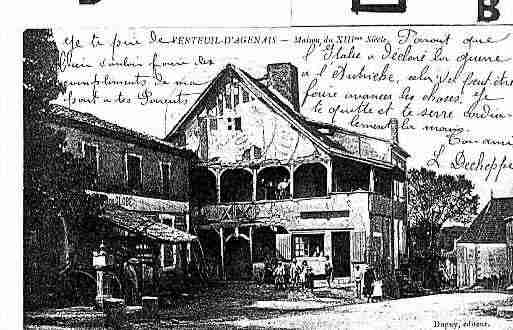 Je te prie de
bien vouloir faire des
compliments de ma
part à tes Parents
VENTEUIL-D'AGENAIS — Maison du XIIIme Siècle
Parait que
l'Italie a déclaré la guerre
à l'Autriche, cela va peut être
faire avancer les choses. Je
te quitte et te serre cordia-
lement la main.
Ton ami
L Decheppe
Dupuy, éditeur.
B